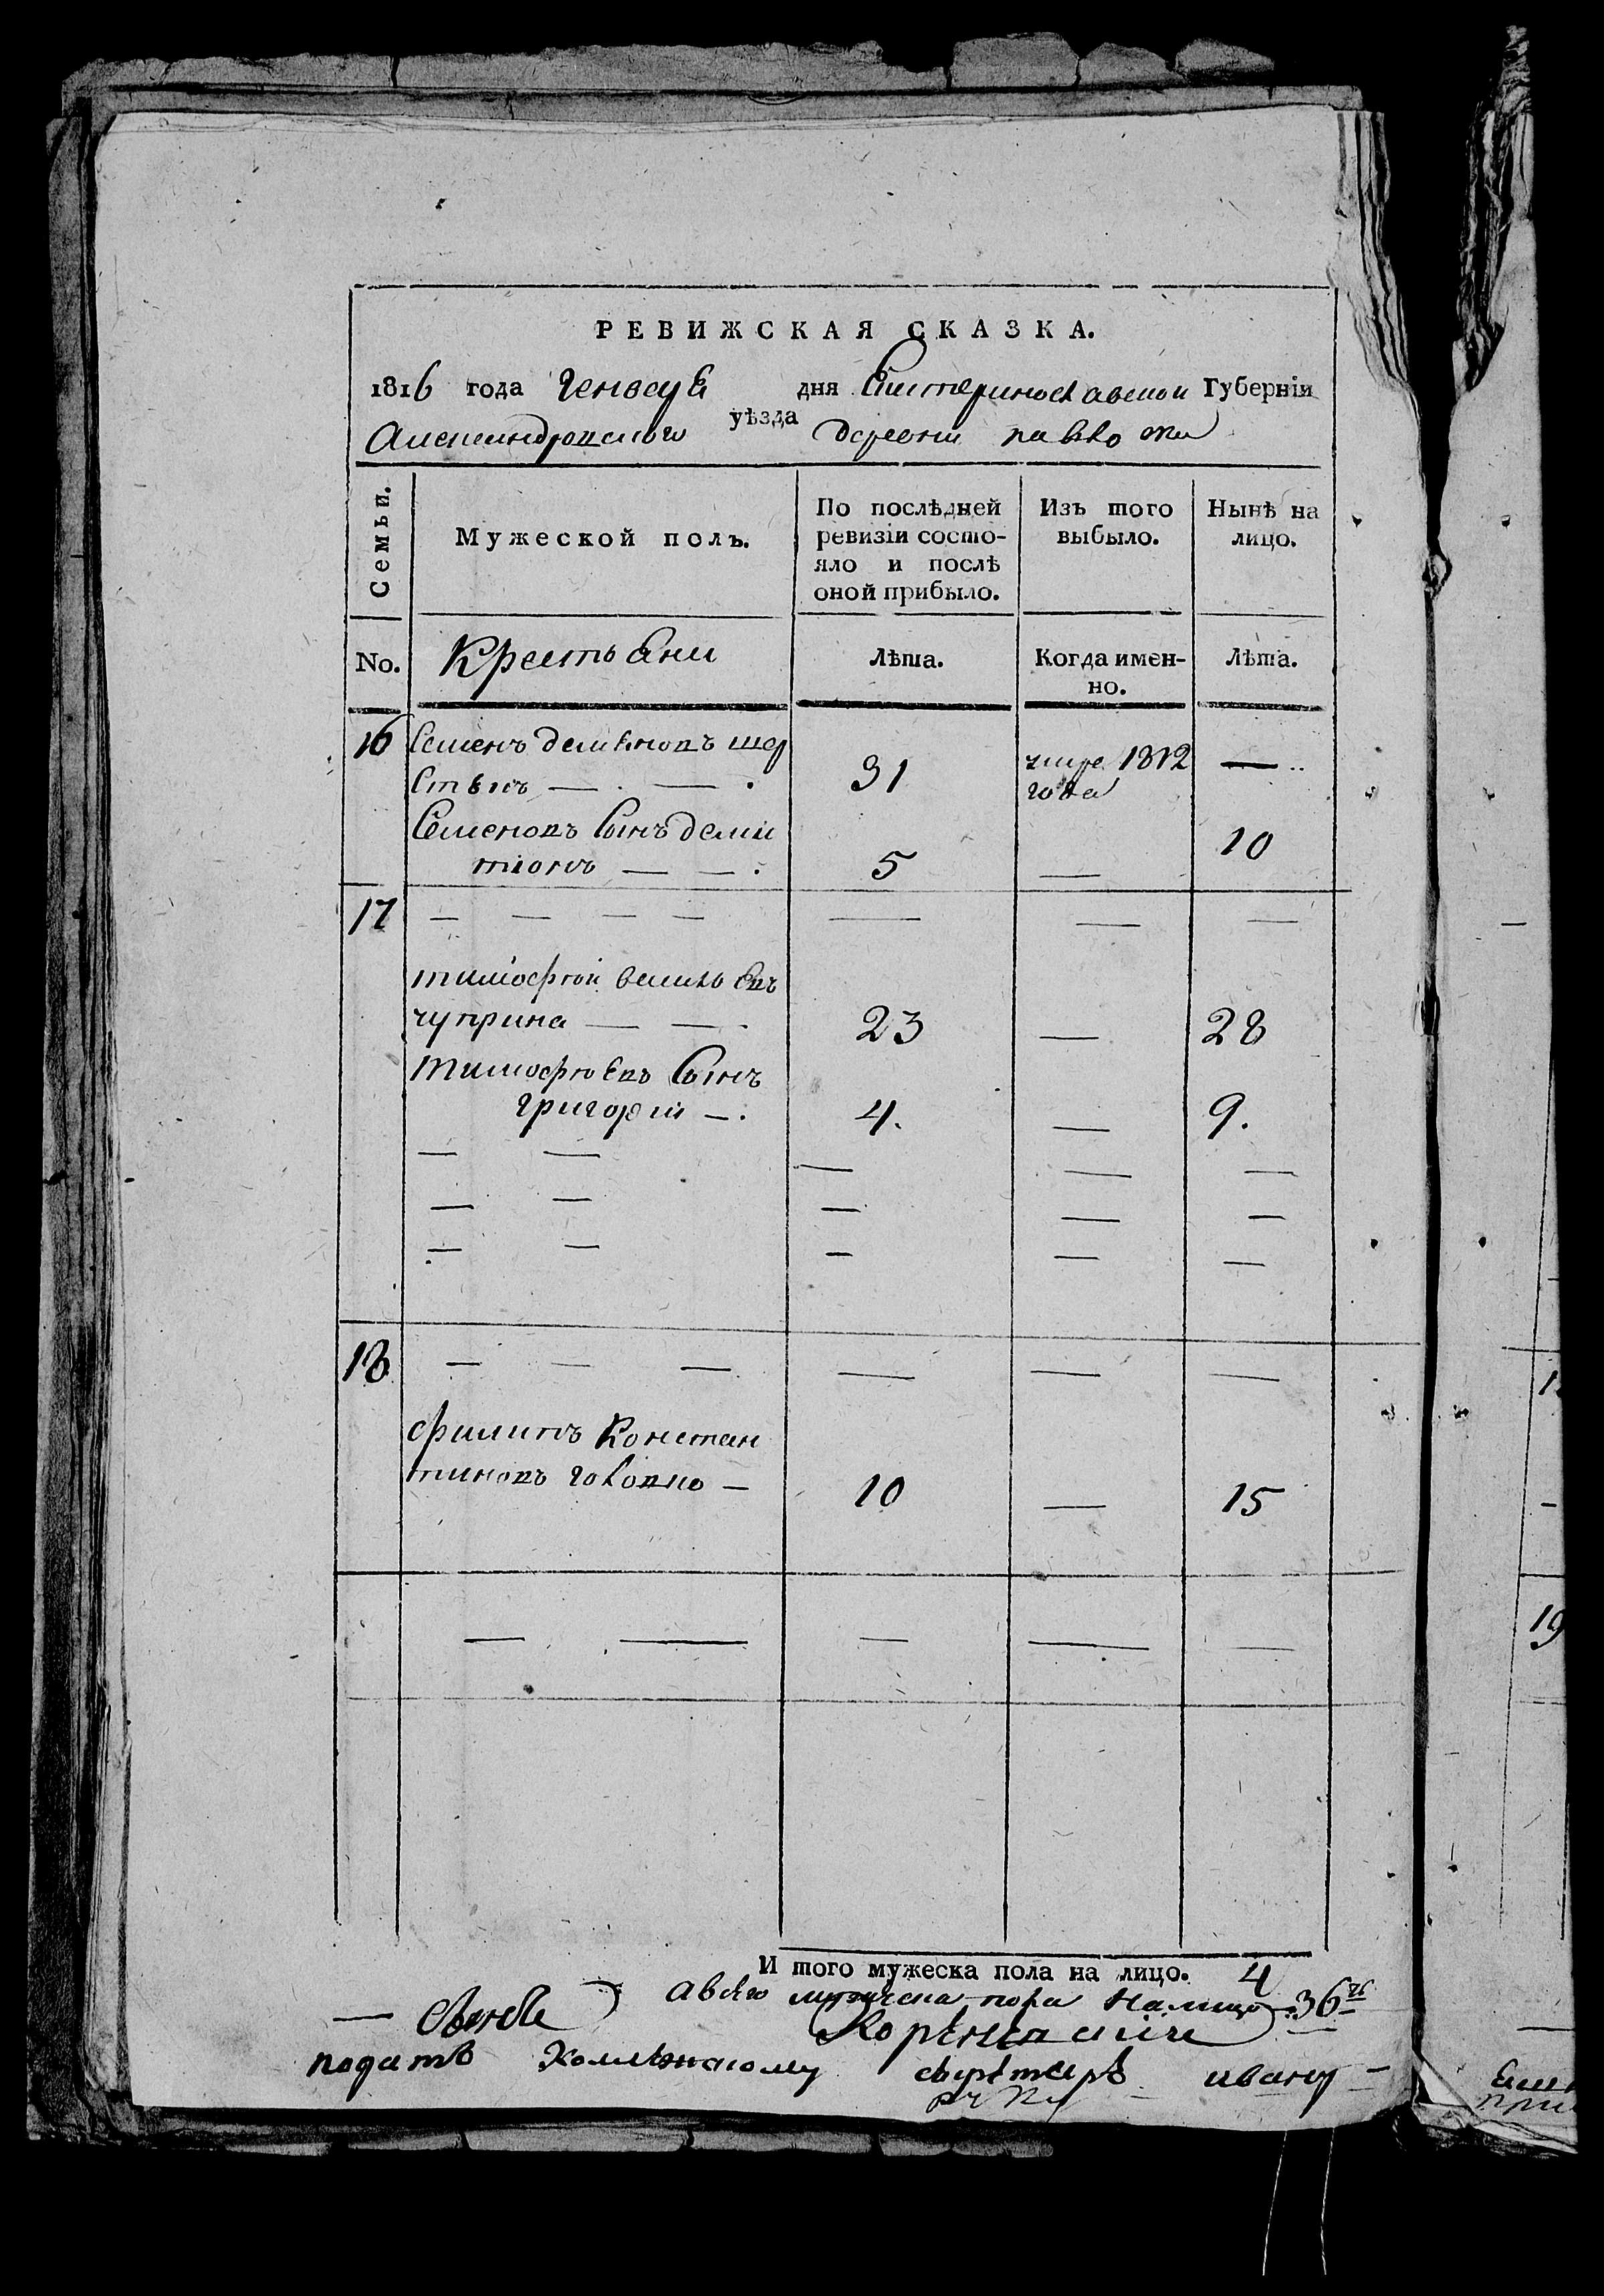 РЕВИЖСКАЯ СКАЗКА.
1816 года Генваря дня Екатеринославской Губерніи
Александровского уѣзда деревни павловки
Семьи. Мужеской полъ. По послѣдней ревизіи состояло и послѣ оной прибыло. Изъ того выбыло. Нынѣ на лицо.
No. Крестьяни Лѣта. Когда именно. Лѣта.
16 Семенъ
31 1812 года —
Семеновъ Сынъ
5 — 10
17 — — — — — — —
тимофѣй василь евъ
чуприна — — 23 — 28
тимофѣевъ Сынъ
григорій — 4. — 9.
— — — — —
— — — — —
— — — — —
18 — — — — — —
филипъ Констан
тиновъ головко — 10 — 15
— — — — —
И того мужеска пола на лицо. 4
а всего мужеска пола На лицо 36
— 
подать Коллежскому ивану —
19